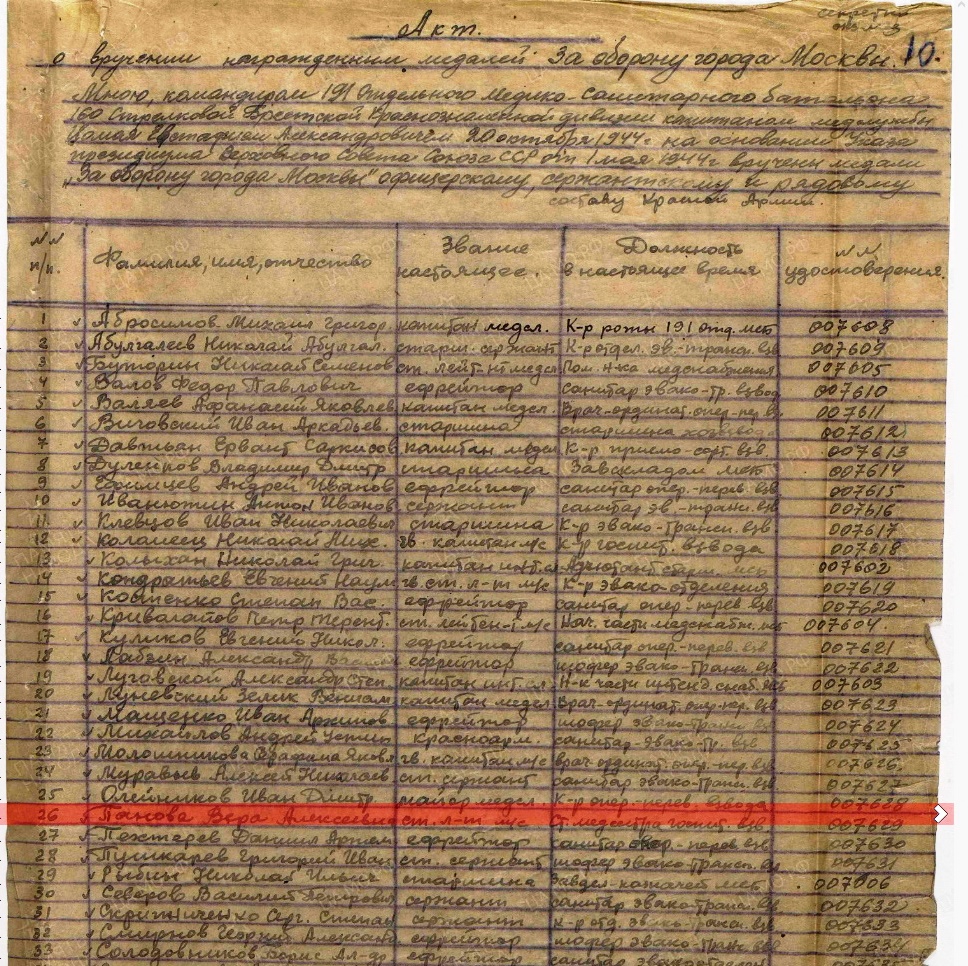 секретно
Акт.
о вручении награжденным медалей За оборону города Москвы. 10.
Мною, командиром 191 Отдельного Медико-санитарного батальона
160 Стрелковой Брестской Краснознаменной дивизии капитаном медслужбы
Александровичем 20 октября 1944г. на основании Указа
президиума Верховного Совета Союза ССР от 1 мая 1944г вручены медали
„За оборону города Москвы" офицерскому, сержантскому и рядовому
составу Красной Армии.
№№ п/п. Фамилия, имя, отчество Звание настоящее. Должность в настоящее время №№ удостоверения.
1 Абросимов Михаил Григор. капитан медсл. К-р роты 191 отд. мсб 007608
2 Абулгалеев Николай Абулгал. старш. сержант К-р отдел. эв.-трансп. взв 007609
3 Буторин Николай Семенов ст. лейт-нт медсл Пом. Н-ка медснабжения 007605
4 Валов Федор Павлович ефрейтор санитар эвако-тр. взвод 007610
5 Валяев Афанасий Яковлев капитан медсл. Врач-ординат. опер-пер. вз 007611
6 Вичовский Иван Аркадьев. старшина старшина хозвзвод 007612
7 Давтьян Ервант Саркисов капитан медсл К-р приемо-сорт. взв. 007613
8 Владимир Дмитр старшина Завскладом мсб 007614
9 Андрей Иванов ефрейтор санитар опер.-перев. взв 007615
10 Иванютин Антон Иванов. сержант санитар эв.-трансп. взв 007616
11 Клевцов Иван Николаевич старшина К-р эвако-трансп. взв 007617
12 Коломеец Николай Мих. гв. капитан м/с К-р госпит. взвода 007618
13 Колыхан Николай Григ. капитан инт.сл Адъютант старш. мсб 007602
14 Кондратьев Евгений Наум гв. ст. л-т м/с К-р эвако-отделения 007619
15 Костенко Степан Вас. ефрейтор санитар опер-перев. взв 007620
16 Петр Терент. ст. лейтен-т м/с Нач. части медснабж. мсб 007604.
17 Куликов Евгений Никол. ефрейтор санитар опер.-перев. взв 007621
18 Лабзин Александр ефрейтор шофер эвако-трансп. взв 007622
19 Луговской Александр Степ. капитан инт.сл. Н-к части интенд. снаб. мсб 007603
20 Луневский Зелик Вениам капитан медсл Врач-ординат. опер-пер. вз 007623
21 Мащенко Иван Архипов ефрейтор шофер эвако-трансп вз 007624
22 Михайлов Андрей Устин Красноарм санитар-эвако-тр. взв 007625
23 Молошникова Серафима Яковл гв. капитан м/с врач-ординат. опер.-пер. вз 007626
24 Муравьев Алексей Николаев ст. сержант санитар эвако-трансп. взв 007627
25 Олейников Иван Дмитр. майор медсл. К-р опер.-перев. взвода 007628
26 Панова Вера Алексеевна ст. л-т м/с Ст. медсестра госпит. взв 007629
27 Пехтерев Даниил Артем ефрейтор санитар опер.-перев взв 007630
28 Пушкарев Григорий Иван ст. сержант шофер эвако-трансп. вз 007631
29 Рыбин Николай Ильич старшина Завдел-казначей мсб 007606
30 Северов Василий Петрович сержант санитар эвако-трансп. вз 007632
31 Скрипниченко Серг. Степан сержант К-р отд. эвако-трансп. вз 007633
32 Смирнов Георгий Александ ефрейтор шофер эвако-трансп. взв 007634
33 Солодовников Борис Ал-др ефрейтор санитар